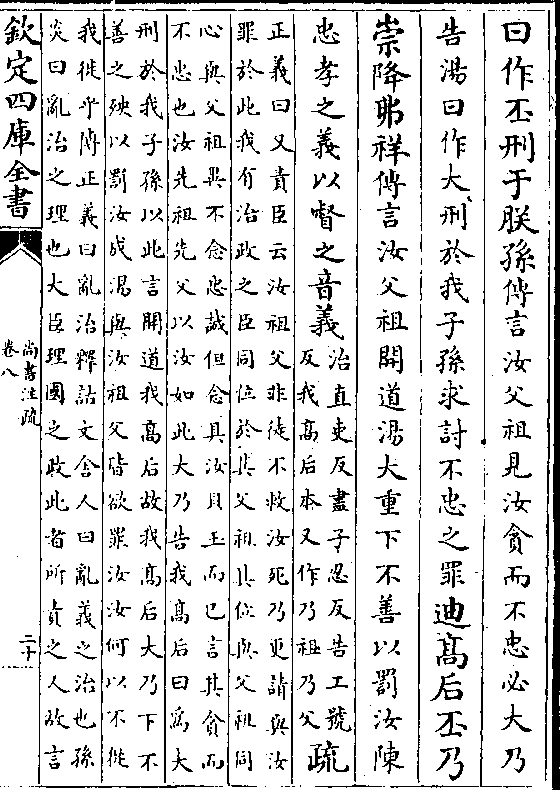 曰作丕刑于朕孫傳言汝父祖見汝貪而不忠必大乃
告湯曰作大刑於我子孫求討不忠之罪迪髙后丕乃
崇降弗祥傳言汝父祖開道湯大重下不善以罰汝陳
忠孝之義以督之音義
治直吏反盡子忍反告工號
反我髙后本又作乃祖乃父
疏
正義曰又責臣云汝祖父非徒不救汝死乃更請與汝
罪於此我有治政之臣同位於其父祖其位與父祖同
心與父祖異不念忠誠但念具汝貝玉而已言其貪而
不忠也汝先祖先父以汝如此大乃告我髙后曰爲大
刑於我子孫以此言開道我髙后故我髙后大乃下不
善之殃以罰汝成湯與汝祖父皆欲罪汝汝何以不從
我徙乎傳正義曰亂治釋詁文舍人曰亂義之治也孫
炎曰亂治之理也大臣理國之政此者所責之人故言
欽定四庫全書
尚書注疏
卷八
二十